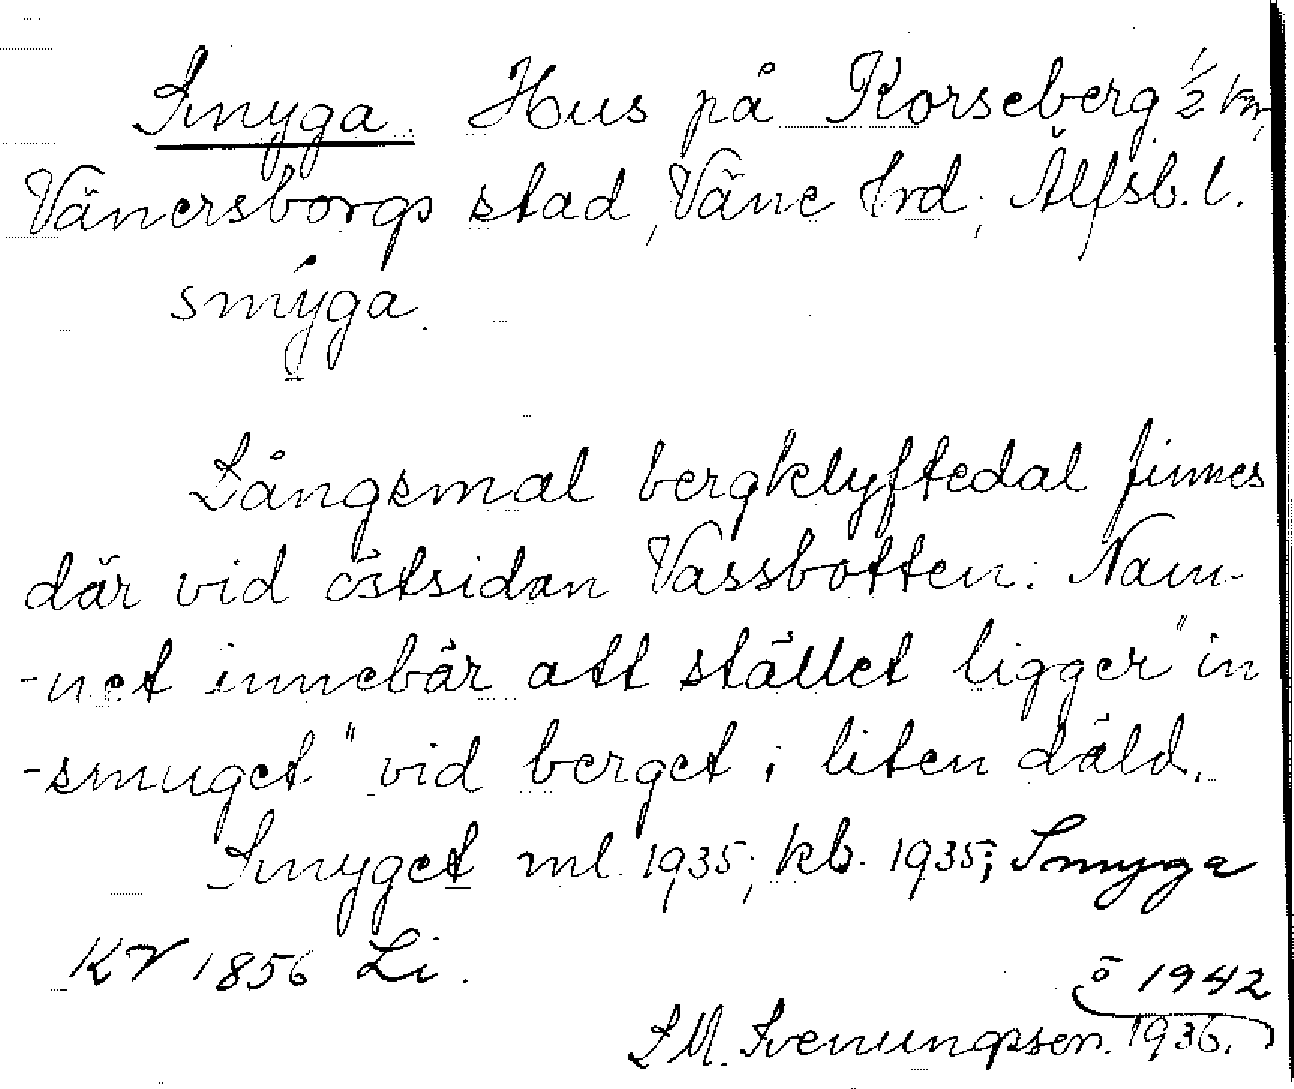 Smyga. Hus på Korseberg ½ km,
Vänersborgs stad, Väne hrd, Älfsb. l.
smýga.
Långsmal bergklyftedal finnes
där vid östsidan Vassbotten. Nam-
-net innebär att stället ligger "in
-smuget" vid berget i liten däld.
Smyget ml 1935, kb. 1935; Smyga
KV 1856 Li.
ö 1942
S M. Svenungsson. 1936.